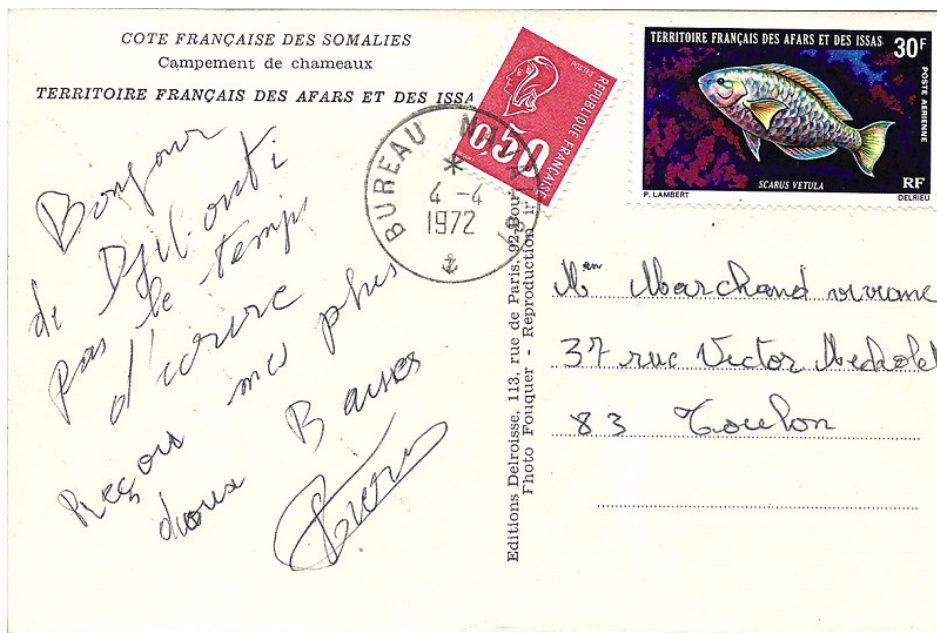 COTE FRANÇAISE DES SOMALIES
Campement de chameaux
TERRITOIRE FRANÇAIS DES AFARS ET DES ISSA
Bonjour
de Djibouti
pas le temps
d'ecrire
Reçois mes plus
doux Baises
POSTES
REPUBLIQUE FRANÇAISE
0,50
BUREAU NAVAL
4 -4
1972
TERRITOIRE FRANÇAIS DES AFARS ET DES ISSAS
30F
POSTE AERIENNE
SCARUS VETULA
RF
P. LAMBERT
DELRIEU
Editions Delroisse, 113, rue de Paris, 92-Bou
Photo Fouquer - Reproduction in
Marchand viviane
37 rue Victor
83 Toulon